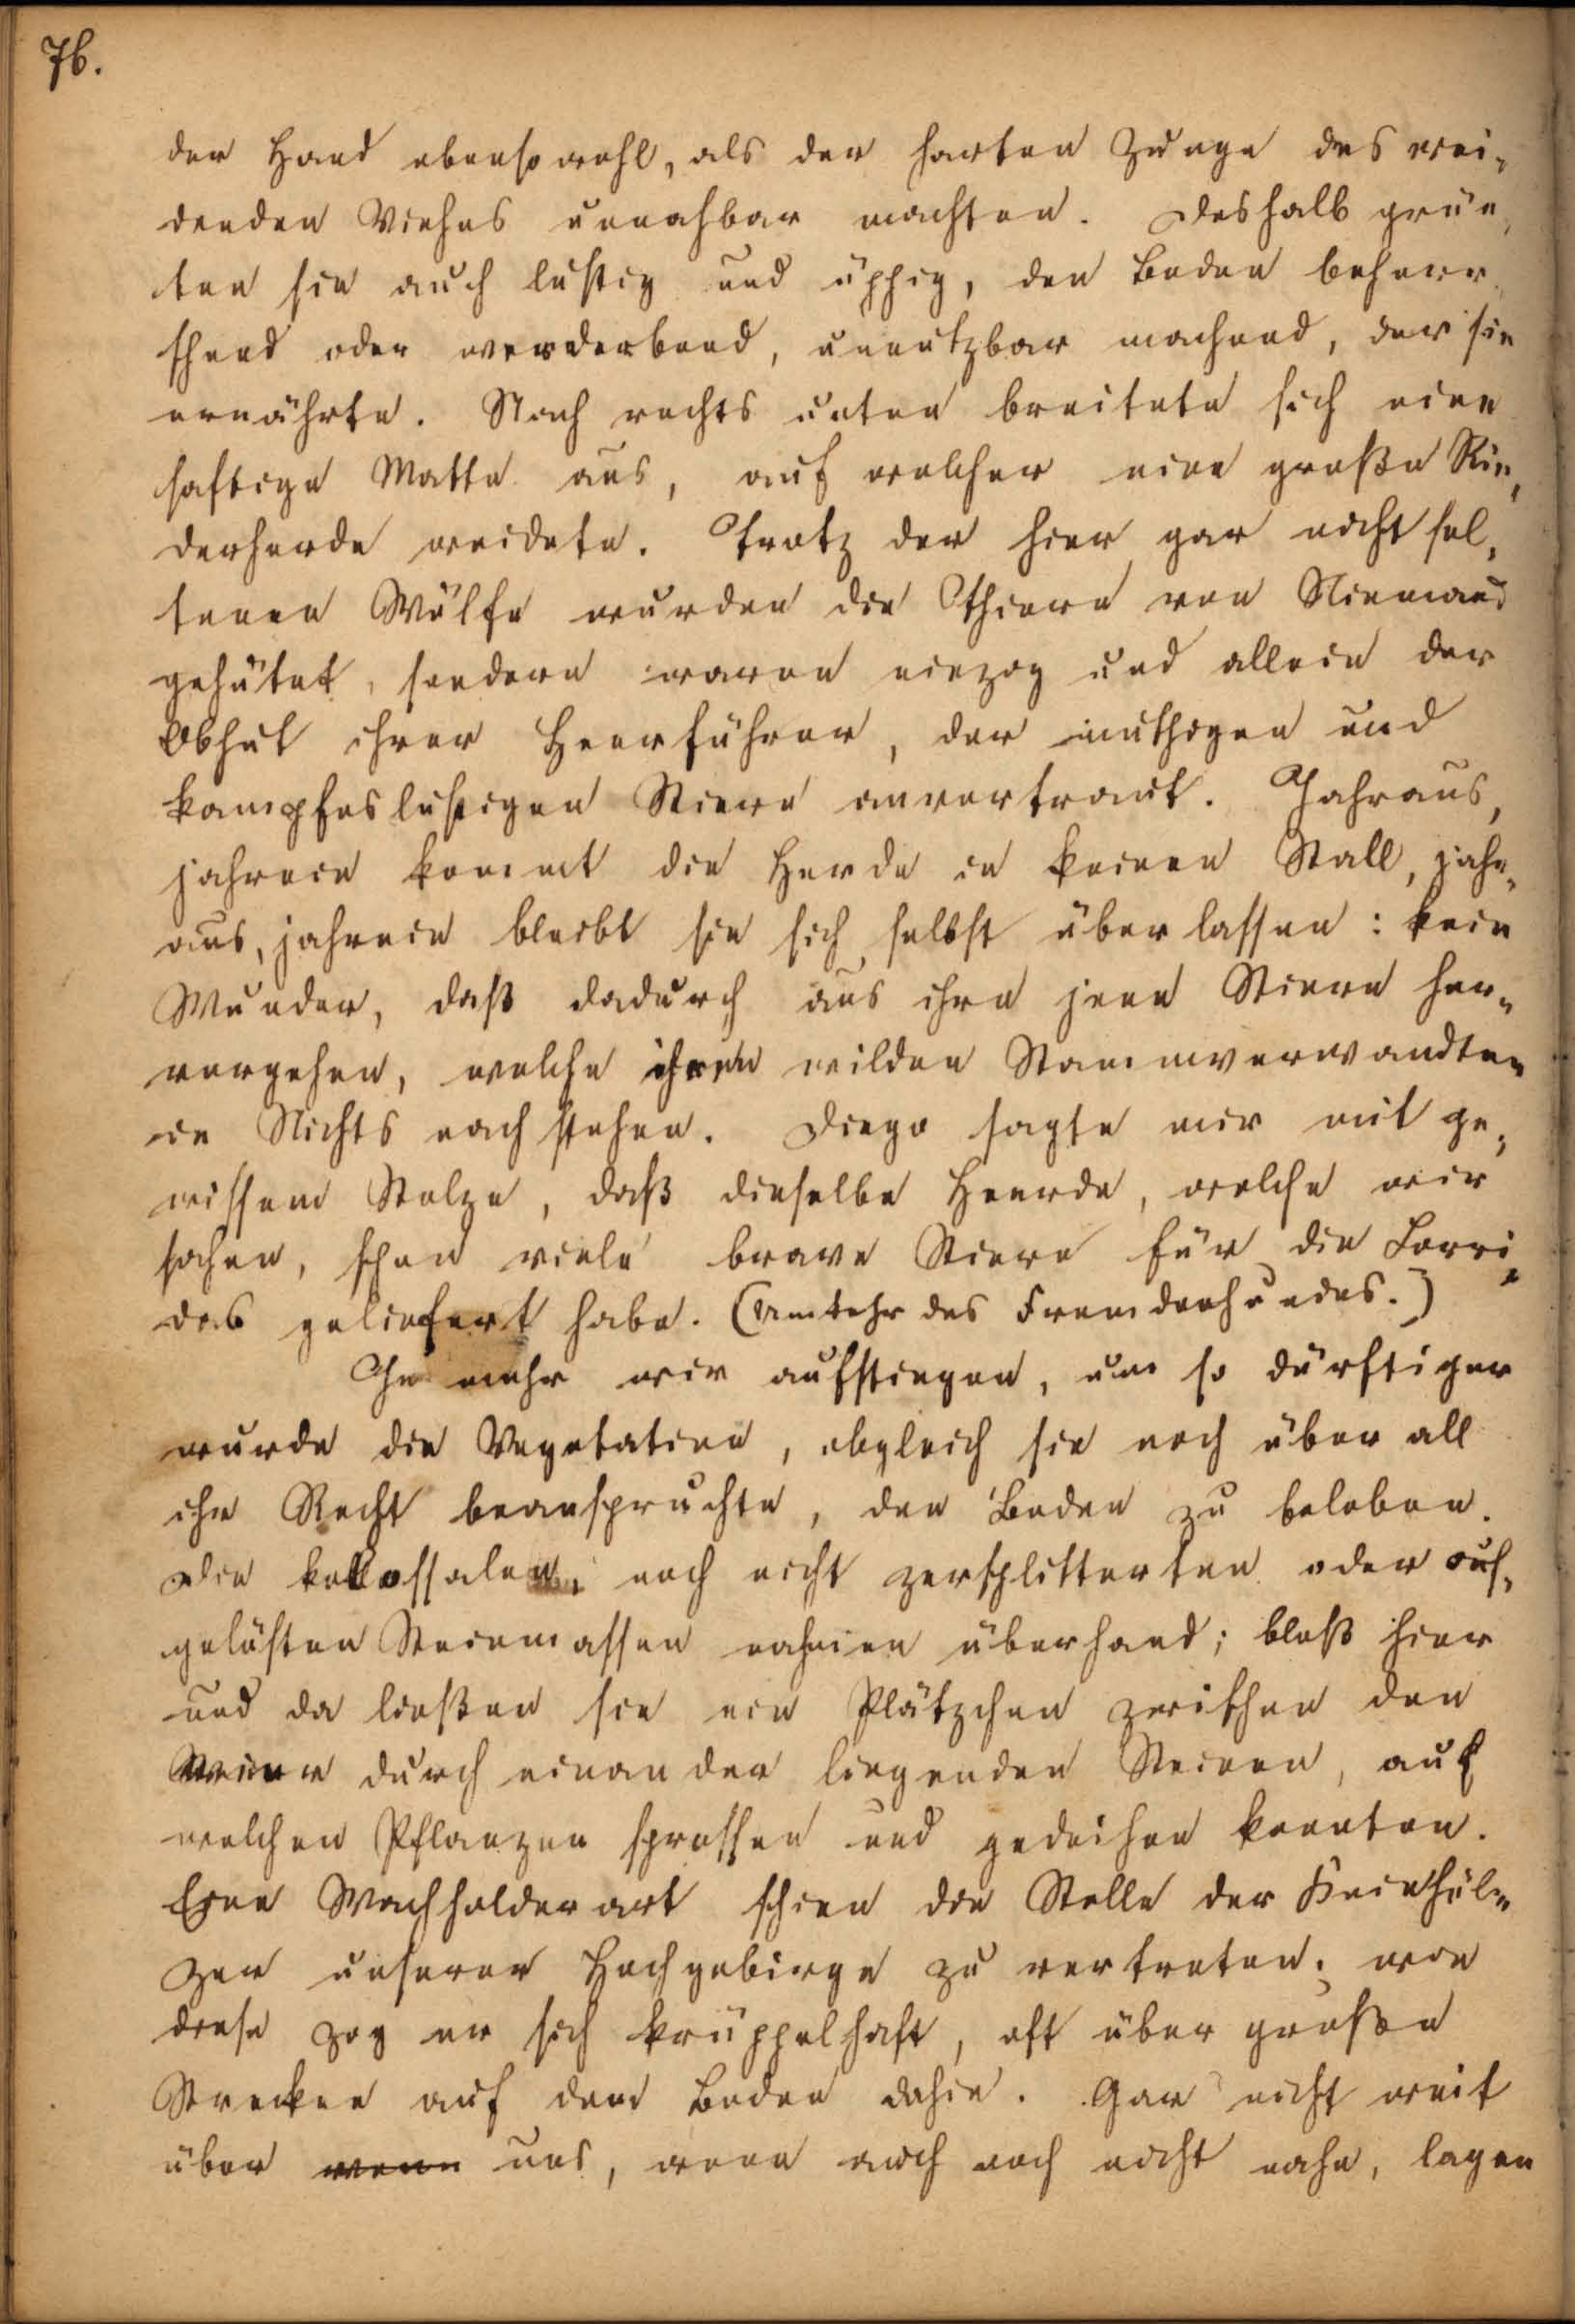 76.
der Hand ebensowohl, als der harten Zunge des wei-
denden Viehes unnahbar machten. Deshalb grün-
ten sie auch lustig und üppig, den Boden beherr-
schend oder verderbend, unnutzbar machend, der sie
ernährte. Nach rechts unten breitete sich eine
saftige Matte aus, auf welcher eine große Rin-
derherde weidete. Trotz der hier gar nicht sel-
tenen Wölfe wurden die Thiere von Niemand
gehütet, sondern waren einzog und allein der
Obhut ihrer Heerführer, der muthigen und
kampfeslustigen Stiere anvertraut. Jahraus,
jahrein kommt die Herde in keinen Stall, jahr-
aus, jahrein bleibt sie sich selbst überlassen: kein
Wunder, daß dadurch aus ihr jene Stiere her-
vorgehen, welche ihren wilden Stammverwandten
in Nichts nach stehen. Diego sagte mir mit ge-
wissem Stolze, daß dieselbe Heerde, welche wir
sahen, schon viele brave Stiere für die Corri-
das geliefert habe. (Umkehr des Fremdenhundes.)
Je mehr wir aufstiegen, um so dürftiger
wurde die Vegetation, obgleich sie noch über all
ihr Recht beanspruchte, den Boden zu beleben.
Die kollossalen, noch nicht zersplitterten oder auf-
gelösten Steinmassen nahmen überhand; bloß hier
und da ließen sie ein Plätzchen zwischen den
durch einander liegenden Steinen, auf
welchen Pflanzen sprossen und gedeihen konnten.
Eine Wachholderart schien die Stelle der Kniehöl-
zer unserer Hochgebirge zu vertreten; wie
diese zog er sich krüppelhaft, oft über große
Strecken auf dem Boden dahin. Gar nicht weit
über wenn uns, wenn auch noch nicht nahe, lagen